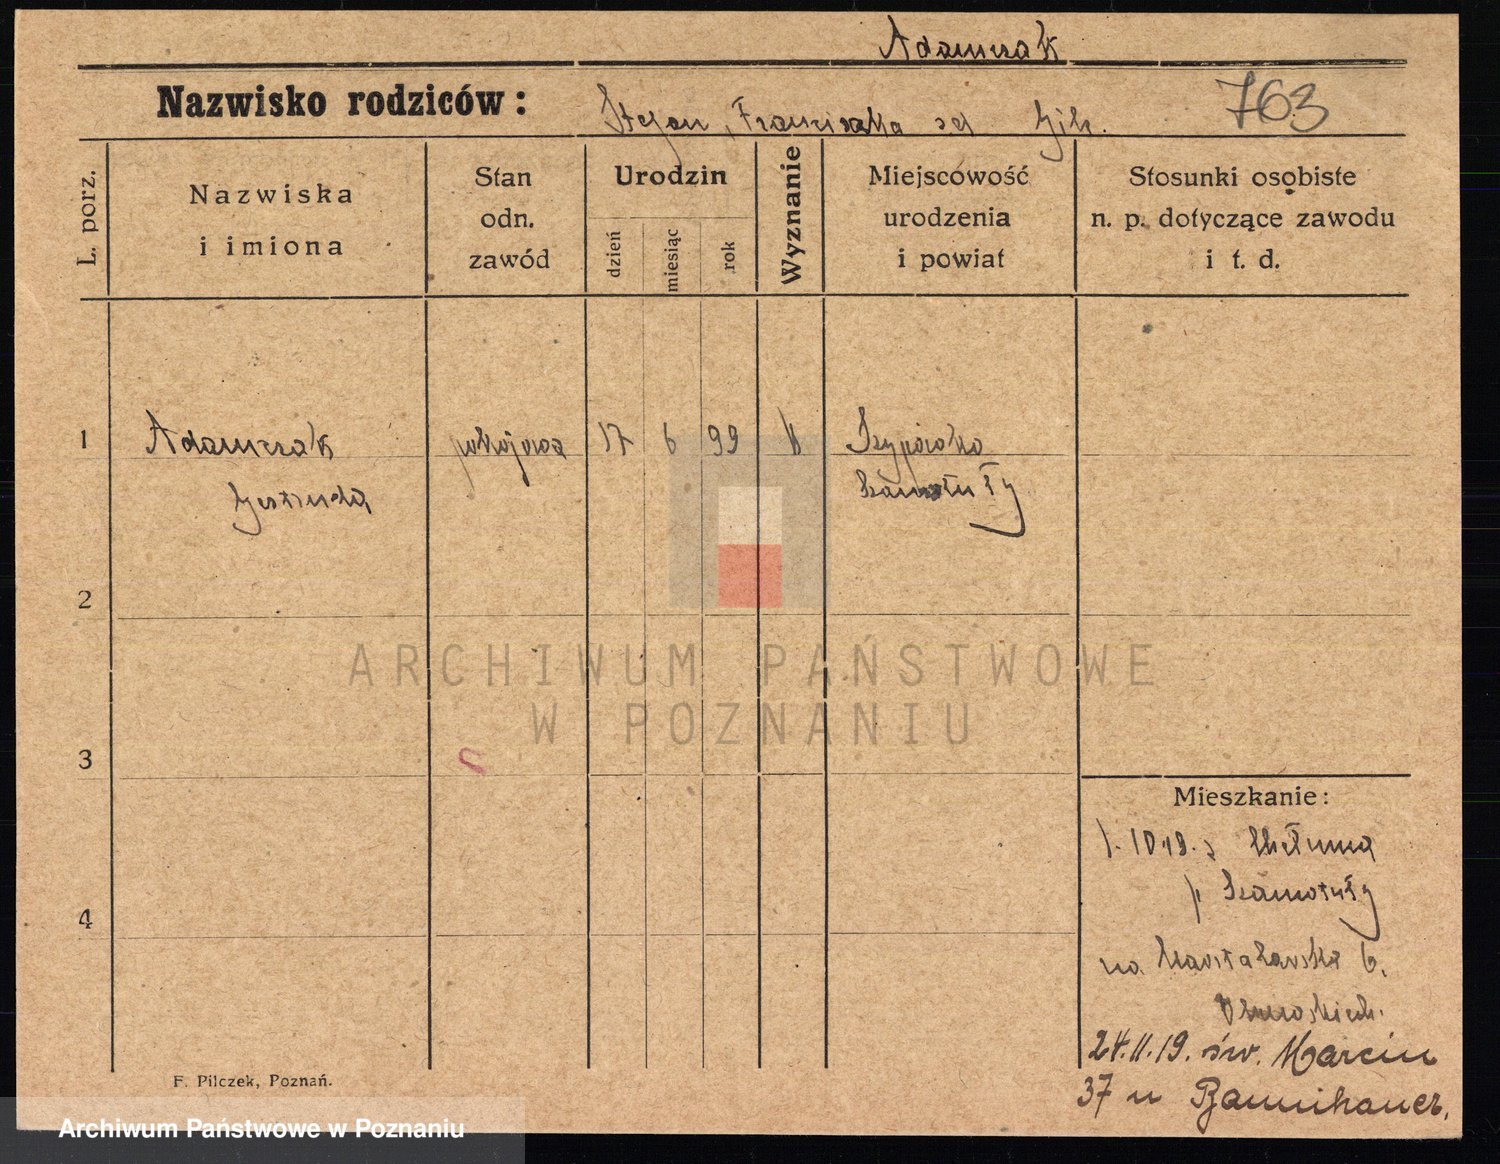 Adamczak
Nazwisko rodziców: Stefan, Franciszka 763
L. porz.
Nazwiska
i imiona
Stan
odn.
zawód
Urodzin
dzień
miesiąc
rok
Wyznanie
Miejscowość
urodzenia
i powiat
Stosunki osobiste
n. p. dotyczące zawodu
i t. d.
1 Adamczak pokojowa 17 6 99 k
Gertruda Szamotuły
2
ARCHIWUM PAŃSTWOWE
W POZNANIU
3
Mieszkanie:
1.10.18. z
p. Szamotuły
4
na 6.
24.II.19. św. Marcin
37 u
F. Pilczek, Poznań.
Archiwum Państwowe w Poznaniu